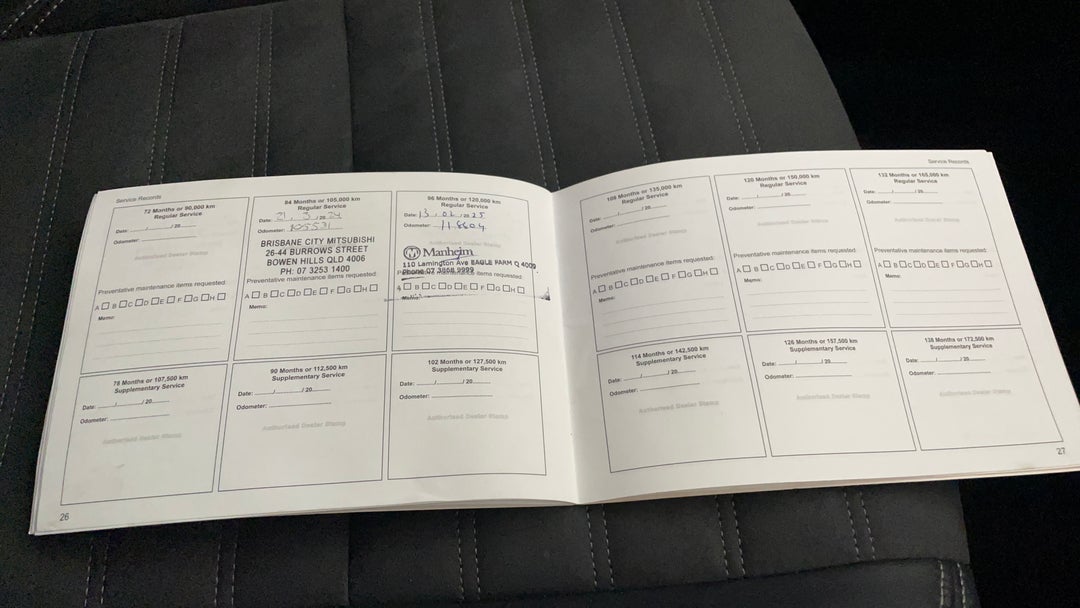 Service Records
72 Months or 90,000 km
Regular Service
Date: / / 20
Odometer:
Authorised Dealer Stamp
Preventative maintenance items requested:
A B C D E F G H
Memo:
84 Months or 105,000 km
Regular Service
Date: 21 / 3 / 20 24
Odometer: 105531
BRISBANE CITY MITSUBISHI
26-44 BURROWS STREET
BOWEN HILLS QLD 4006
PH: 07 3253 1400
Preventative maintenance items requested:
A B C D E F G H
Memo:
96 Months or 120,000 km
Regular Service
Date: 13 / 02 / 2025
Odometer: 118604
Authorised Dealer Stamp
Manheim
110 Lamington Ave EAGLE FARM Q 4009
Phone: 07 3868 9999
maintenance items requested:
A B C D E F G H
Memo:
78 Months or 107,500 km
Supplementary Service
Date: / / 20
Odometer:
Authorised Dealer Stamp
90 Months or 112,500 km
Supplementary Service
Date: / / 20
Odometer:
Authorised Dealer Stamp
102 Months or 127,500 km
Supplementary Service
Date: / / 20
Odometer:
Authorised Dealer Stamp
26
Service Records
108 Months or 135,000 km
Regular Service
Date: / / 20
Odometer:
Authorised Dealer Stamp
Preventative maintenance items requested:
A B C D E F G H
Memo:
120 Months or 150,000 km
Regular Service
Date: / / 20
Odometer:
Authorised Dealer Stamp
Preventative maintenance items requested:
A B C D E F G H
Memo:
132 Months or 165,000 km
Regular Service
Date: / / 20
Odometer:
Authorised Dealer Stamp
Preventative maintenance items requested:
A B C D E F G H
Memo:
114 Months or 142,500 km
Supplementary Service
Date: / / 20
Odometer:
Authorised Dealer Stamp
126 Months or 157,500 km
Supplementary Service
Date: / / 20
Odometer:
Authorised Dealer Stamp
138 Months or 172,500 km
Supplementary Service
Date: / / 20
Odometer:
Authorised Dealer Stamp
27